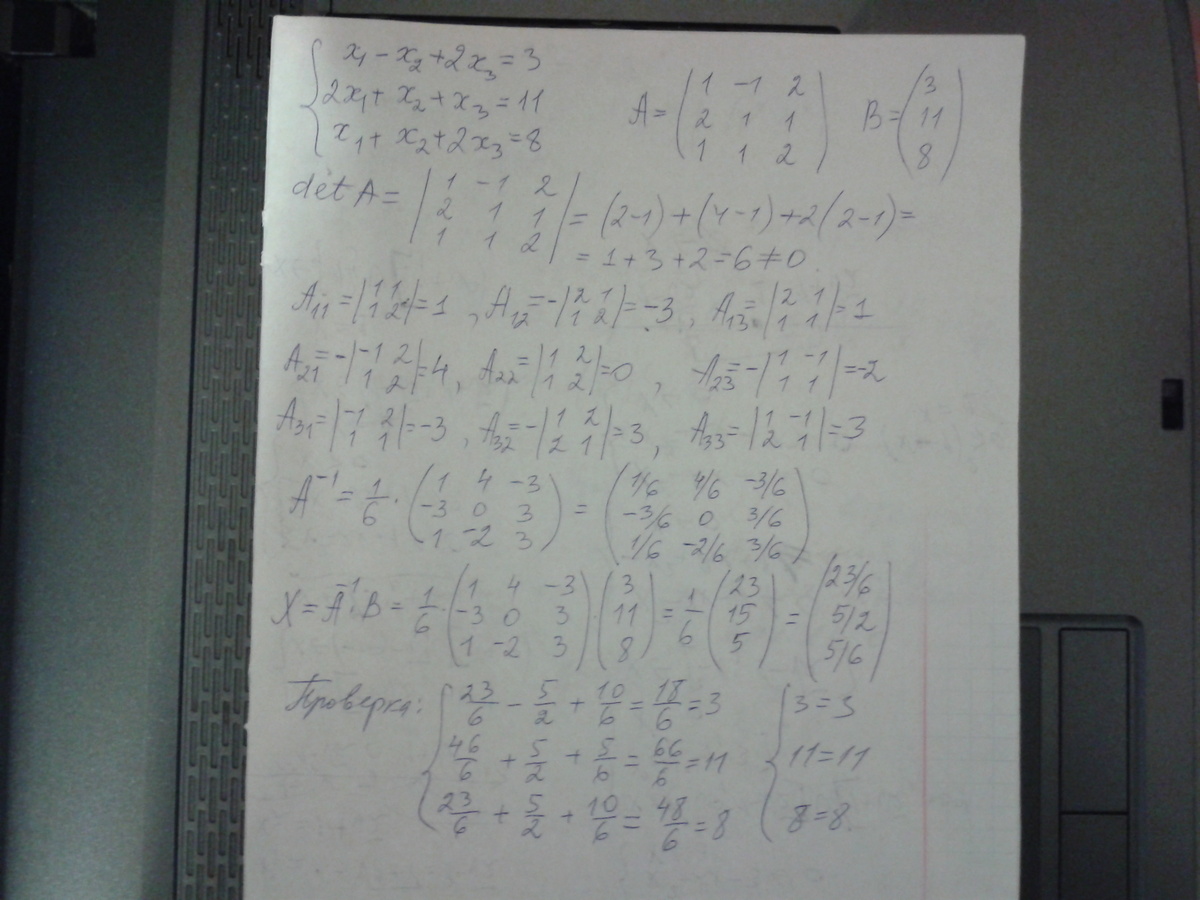 x₁ - x₂ + 2x₃ = 3
2x₁ + x₂ + x₃ = 11
x₁ + x₂ + 2x₃ = 8
A = (1 -1 2
2 1 1
1 1 2)
B = (3
11
8)
det A = |1 -1 2
2 1 1
1 1 2| = (2-1) + (4-1) + 2(2-1) =
= 1 + 3 + 2 = 6 ≠ 0
A₁₁ = |1 1
1 2| = 1 , A₁₂ = -|2 1
1 2| = -3 , A₁₃ = |2 1
1 1| = 1
A₂₁ = -|-1 2
1 2| = 4 , A₂₂ = |1 2
1 2| = 0 , A₂₃ = -|1 -1
1 1| = -2
A₃₁ = |-1 2
1 1| = -3 , A₃₂ = -|1 2
2 1| = 3 , A₃₃ = |1 -1
2 1| = 3
A⁻¹ = 1/6 · (1 4 -3
-3 0 3
1 -2 3) = (1/6 4/6 -3/6
-3/6 0 3/6
1/6 -2/6 3/6)
X = A⁻¹ · B = 1/6 · (1 4 -3
-3 0 3
1 -2 3) · (3
11
8) = 1/6 (23
15
5) = (23/6
5/2
5/6)
Проверка: 23/6 - 5/2 + 10/6 = 18/6 = 3 3 = 3
46/6 + 5/2 + 5/6 = 66/6 = 11 11 = 11
23/6 + 5/2 + 10/6 = 48/6 = 8 8 = 8